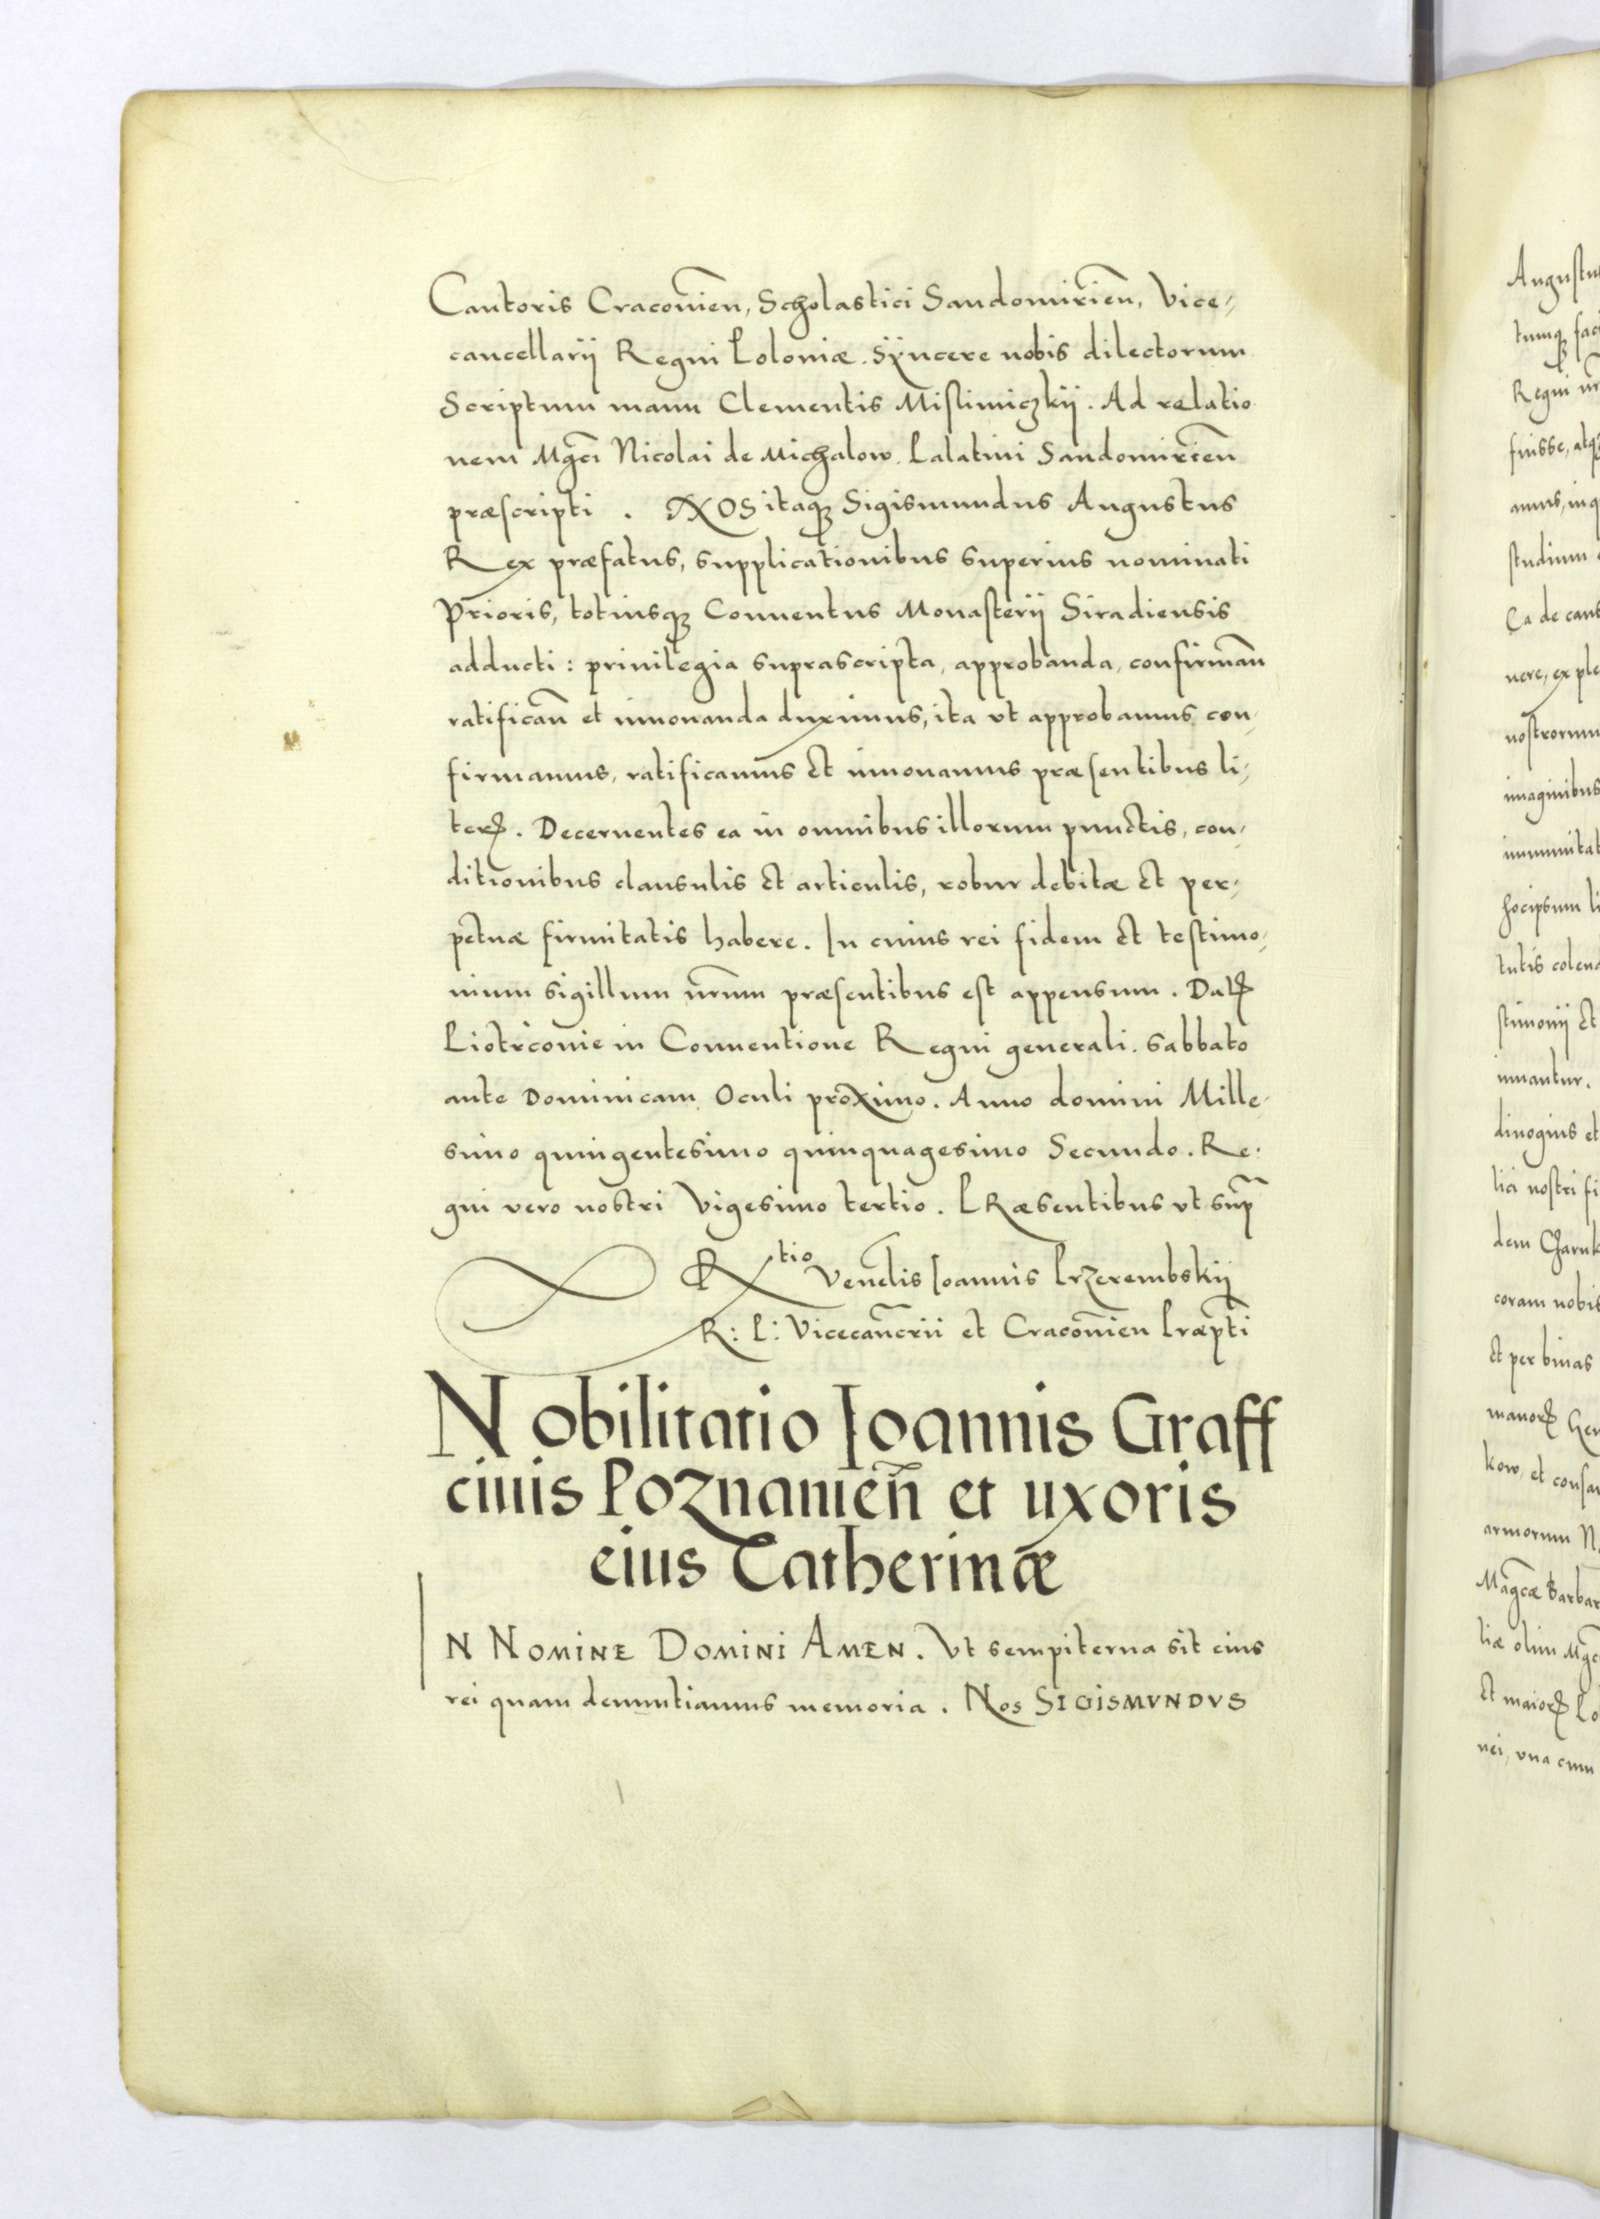 Cantoris Cracovień, Scholastici Sandomirień, Vice-
cancellarÿ Regni Poloniæ. Sÿncere nobis dilectorum
Scriptum manu Clementis Mislimiczkÿ. Ad relatio
nem Mgcī Nicolai de Michalow. Palatini Sandomirień
præscripti. NOS itaqʒ Sigismundus Augustus
Rex præfatus, supplicationibus superius nominati
Prioris, totiusqʒ Conuentus Monasterÿ Siradiensis
adducti: priuilegia suprascripta, approbanda, confirmañ
ratificañ et innouanda duximus, ita vt approbamus con-
firmamus, ratificamus et innouamus præsentibus li-
terꝭ. Decernentes ea in omnibus illorum punctis, con-
ditionibus clausulis et articulis, robur debitæ et per-
petuæ firmitatis habere. In cuius rei fidem et testimo-
nium sigillum nr̄um præsentibus est appensum. Datꝭ
Piotrcouie in Conuentione Regni generali. Sabbato
ante Dominicam Oculi proximo. Anno domini Mille-
simo quingentesimo quinquagesimo Secundo. Re-
gni vero nostri Vigesimo tertio. PRæsentibus vt sup̄
Rtio Veneb̄lis Ioannis Przerembskÿ
R: P: Vicecanc̄rii et Cracouień Præp̄ti
Nobilitatio Ioannis Graff
ciuis Poznanień et uxoris
eius Catherinæ
IN NOMINE DOMINI AMEN. Vt sempiterna sit eius
rei quam denuntiamus memoria. Nos SIGISMVNDVS
Augustu
tumqʒ faci
Regni nr̄
fuisse, atqʒ
amus, in q
studium
Ea de caus
uere, ex ple
nostrorum
imaginibus
immunitat
hocipsum li
tutis colend
stimonÿ et
inuantur.
diuogius et
lici nostri fi
dem Charnk
coram nobis
et per binas
manorꝭ Gen
kow, et consan
armorum N
Magc̄æ Barbar
liæ olim Mgc̄
et maiorꝭ Po
nei, vna cum